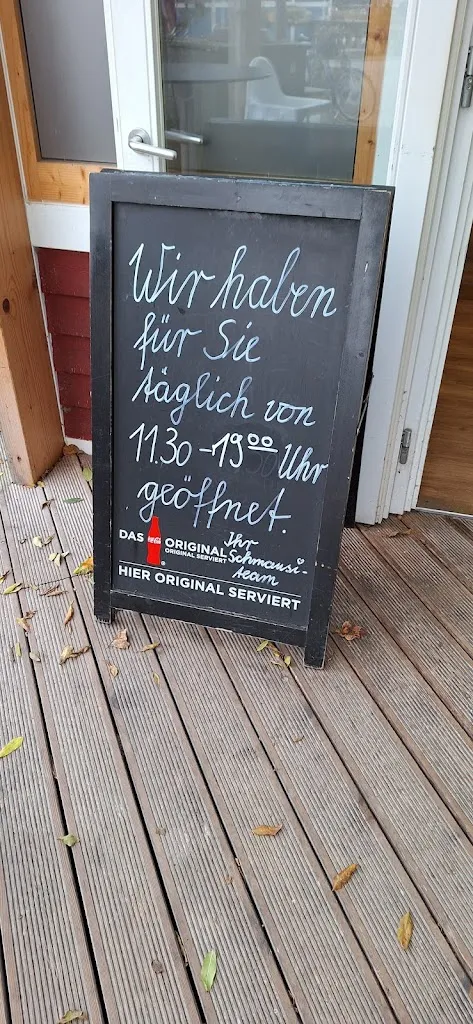 Wir haben
für Sie
täglich von
11.30 - 19⁰⁰ Uhr
geöffnet.
DAS Coca-Cola ORIGINAL
ORIGINAL SERVIERT
Ihr
Schmausi-
team
HIER ORIGINAL SERVIERT